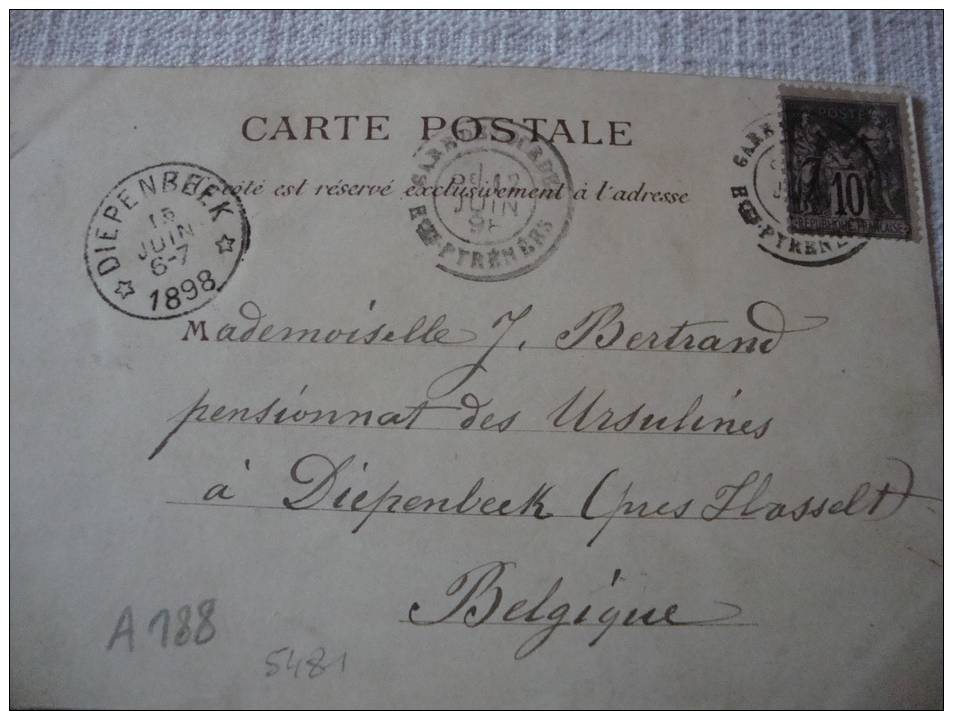 CARTE POSTALE
côté est réservé exclusivement à l'adresse
DIEPENBEEK
JUIN
6-7
1898
GARE
JUIN
98
Htes-PYRÉNÉES
POSTE
10
REPUBLIQUE FRANÇAISE
GARE
Mademoiselle J. Bertrand
pensionnat des Ursulines
à Diepenbeek (près Hasselt)
Belgique
A 188
5481